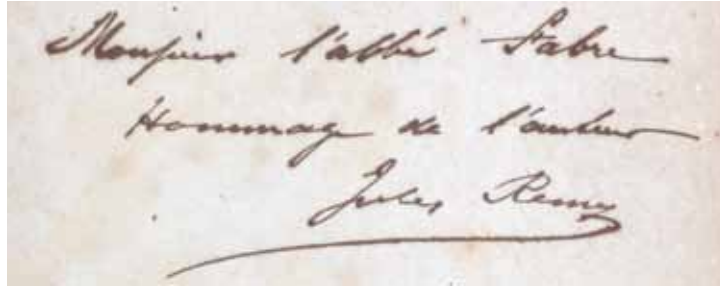 Monsieur l'abbé Fabre
Hommage de l'auteur
Jules Remy